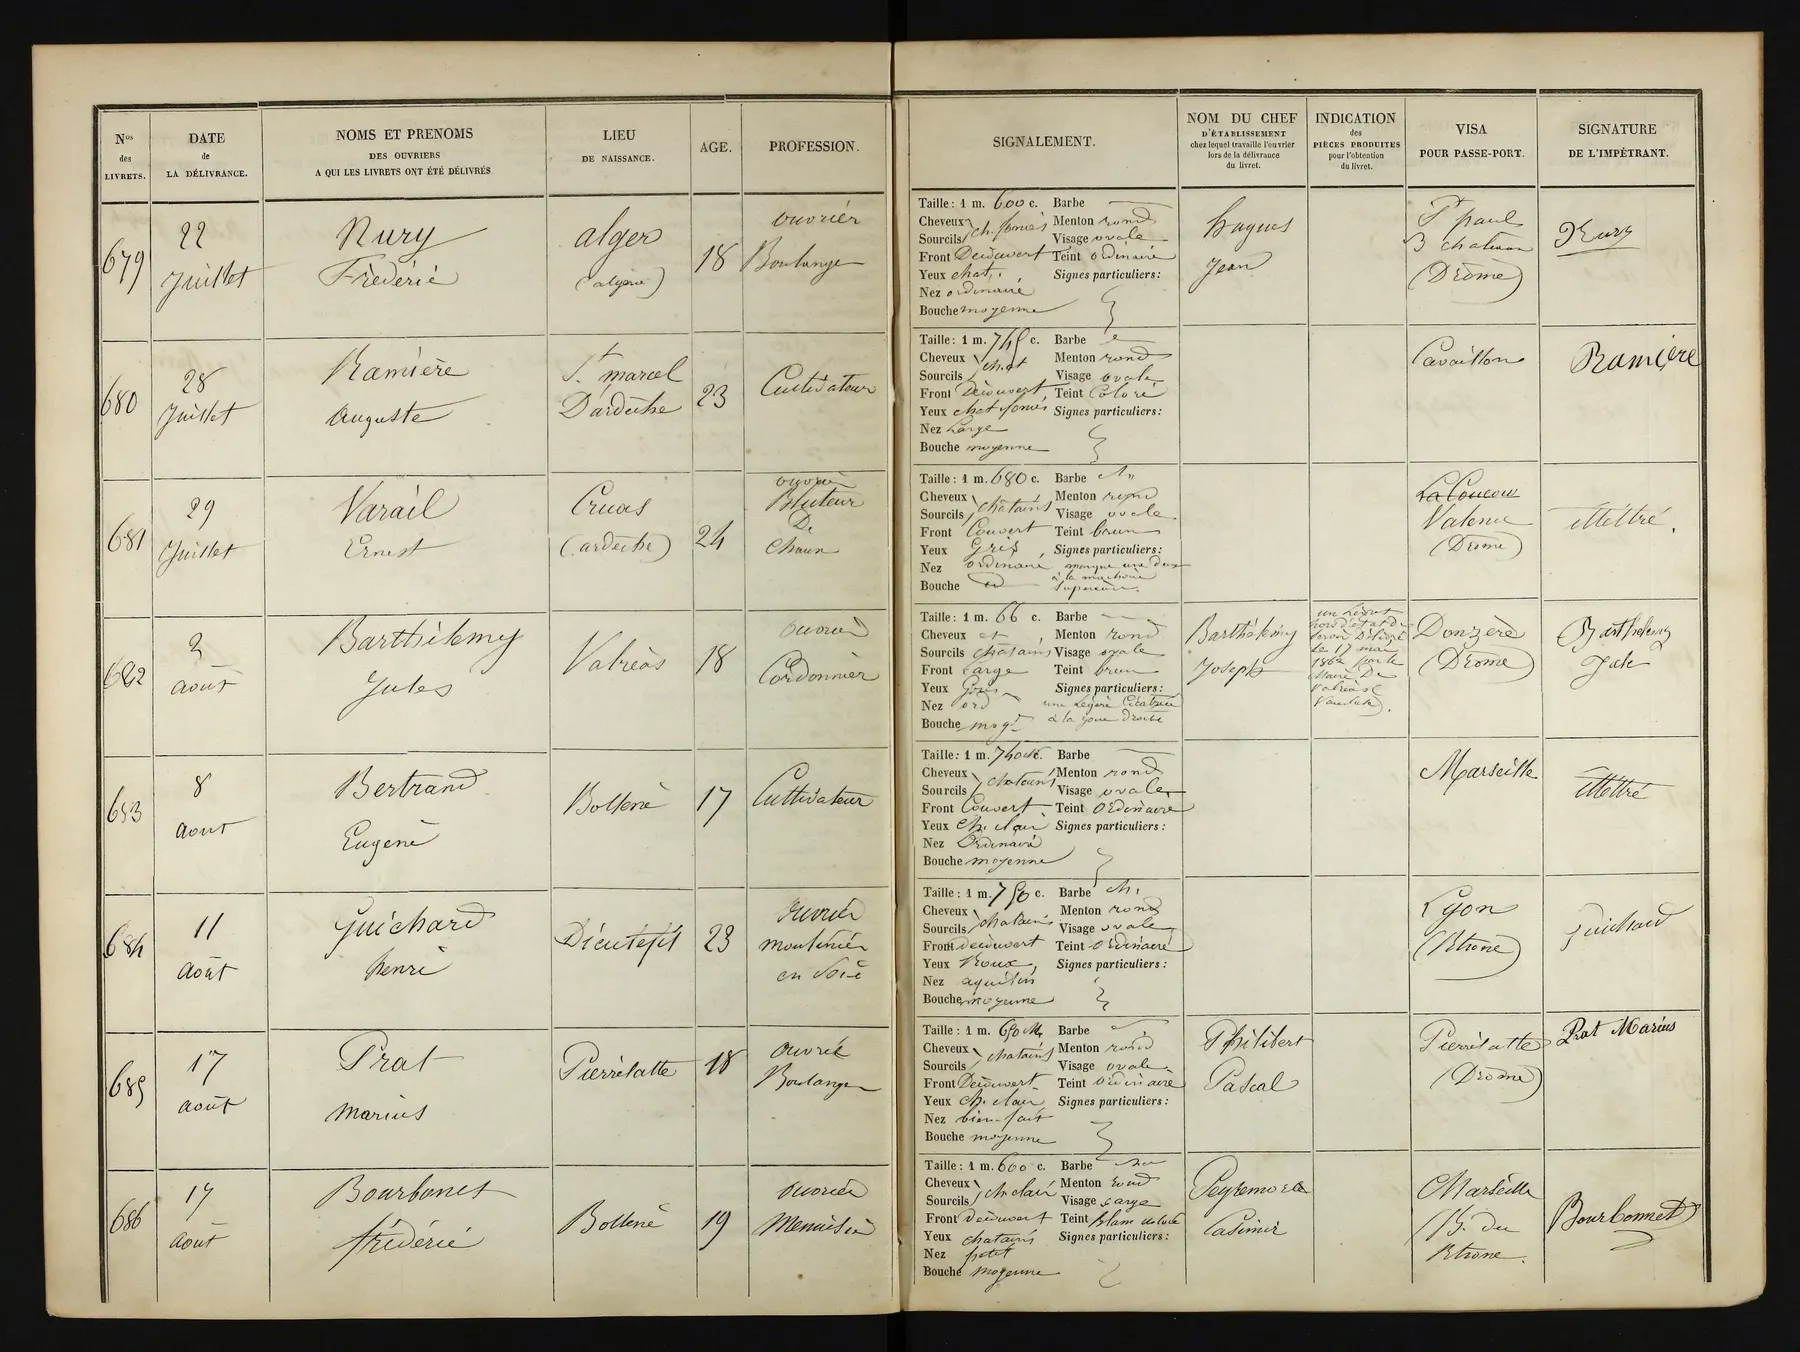 Nos des LIVRETS.
DATE de LA DÉLIVRANCE.
NOMS ET PRENOMS DES OUVRIERS A QUI LES LIVRETS ONT ÉTÉ DÉLIVRÉS
LIEU DE NAISSANCE.
AGE.
PROFESSION.
SIGNALEMENT.
NOM DU CHEF D'ÉTABLISSEMENT chez lequel travaille l'ouvrier lors de la délivrance du livret.
INDICATION des PIÈCES PRODUITES pour l'obtention du livret.
VISA POUR PASSE-PORT.
SIGNATURE DE L'IMPÉTRANT.
679
22
Juillet
Nury
Fréderic
alger
(algerie)
18
ouvrier
Boulanger
Taille: 1 m. 600 c. Barbe
Cheveux Menton rond
Sourcils ch. foncés Visage ovale
Front Découvert Teint ordinaire
Yeux chat. Signes particuliers:
Nez ordinaire
Bouche moyenne
hugues
Jean
St paul
3 chateaux
(Drome)
Nury
680
28
Juillet
Ramière
auguste
St marcel
D'ardèche
23
Cultivateur
Taille: 1 m. 745 c. Barbe
Cheveux Menton rond
Sourcils chat Visage ovale
Front Découvert Teint Coloré
Yeux chat foncés Signes particuliers:
Nez Large
Bouche moyenne
Cavaillon
Ramière
681
29
Juillet
Varail
Ernest
Cruas
(ardèche)
24
ouvrier
Bluteur
De
Chaux
Taille: 1 m. 680 c. Barbe ch.
Cheveux Menton rond
Sourcils chatains Visage ovale
Front Couvert Teint brun
Yeux Gris Signes particuliers:
Nez ordinaire manque une dent
Bouche id à la machoire
superieure.
La Coucou
Valence
(Drome)
illéttré.
682
2
août
Barthélemy
Jules
Valréas
18
ouvrier
Cordonnier
Taille: 1 m. 66 c. Barbe
Cheveux et Menton rond
Sourcils chatains Visage ovale
Front Large Teint brun
Yeux Gris Signes particuliers:
Nez ord une Légère Cicatrice
Bouche moy. à la joue droite
Barthélémy
Joseph
un Livret
hors d'état de
servir Délivré
Le 17 mai
1862 par le
Maire De
Valréas
(Vaucluse).
Donzère
(Drome)
Barthelemy
Jule
683
8
aout
Bertrand
Eugène
Bollène
17
Cultivateur
Taille: 1 m. 740 c. Barbe
Cheveux Menton rond
Sourcils chatains Visage ovale
Front Couvert Teint Ordinaire
Yeux ch. clair Signes particuliers:
Nez Ordinaire
Bouche moyenne
Marseille
illéttré
684
11
août
Guichard
henri
Dieulefit
23
ouvrier
moulinier
en Soie
Taille: 1 m. 750 c. Barbe ch.
Cheveux Menton rond
Sourcils chatains Visage ovale
Front decouvert Teint Ordinaire
Yeux Roux, Signes particuliers:
Nez aquilin
Bouche moyenne
Lyon
(Rhone)
guichard
685
17
août
Prat
marius
Pierrelatte
18
ouvrier
Boulanger
Taille: 1 m. 650 c. Barbe
Cheveux Menton rond
Sourcils chatains Visage ovale
Front Découvert Teint Ordinaire
Yeux ch. clair Signes particuliers:
Nez bien fait
Bouche moyenne
Philibert
Pascal
Pierrelatte
(Drome)
Prat Marius
686
17
Août
Bourbonet
frédéric
Bollène
19
ouvrier
Menuisier
Taille: 1 m. 600 c. Barbe
Cheveux Menton rond
Sourcils ch clair Visage Large
Front Découvert Teint Blanc
Yeux chatains Signes particuliers:
Nez petit
Bouche moyenne
Casimir
Marseille
B. du
Rhone.
Bourbonnet